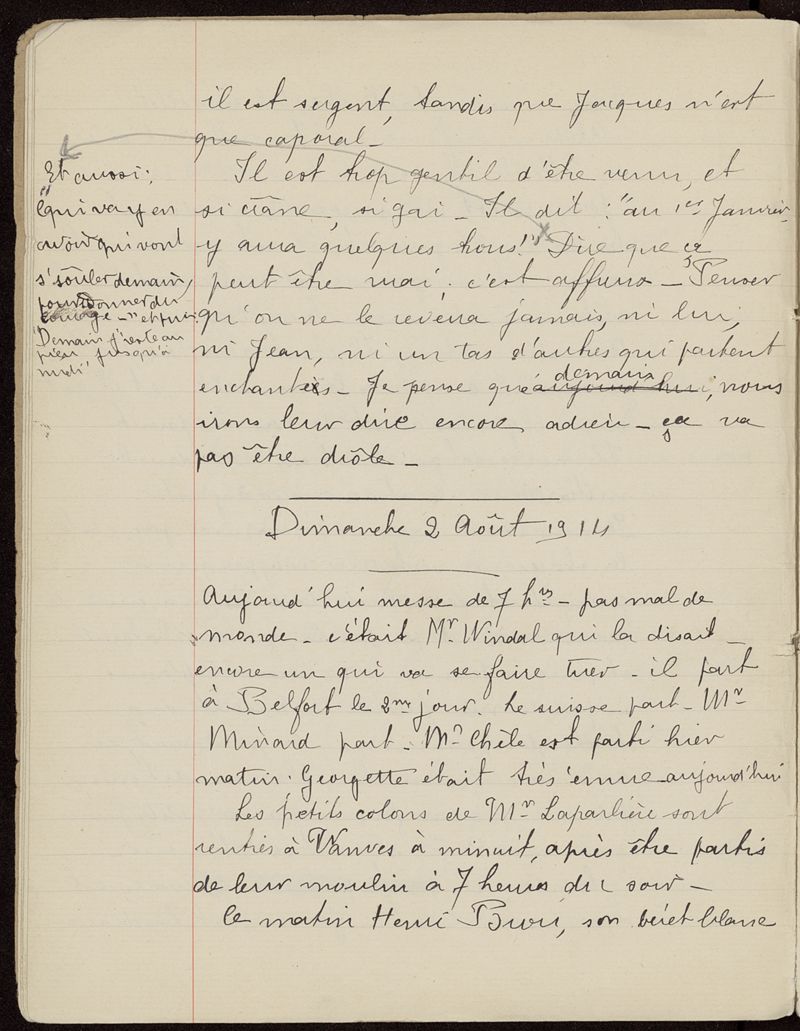 il est sergent, tandis que Jacques n'est
que caporal_
Il est trop gentil d'être venu, et
si crâne, si gai _ Il dit : "au 1er Janvier
y aura quelques trous!" Dire que ça
peut être vrai, c'est affreux _ Penser
qu'on ne le reverra jamais, ni lui,
ni Jean, ni un tas d'autres qui partent
enchantés _ Je pense que demain
aujourd'hui, nous
irons leur dire encore adieu _ ça va
pas être drôle _
Et aussi:
"qui va y en
avoir qui vont
s'soûler demain,
pour s'donner du
courage _" et puis:
"Demain j'reste au
pieu jusqu'à
midi"
Dimanche 2 Août 1914
Aujourd'hui messe de 7 hres _ pas mal de
monde _ c'était Mr Windal qui la disait _
encore un qui va se faire tuer _ il part
à Belfort le 2me jour. Le suisse part _ Mr
Minard part _ Mr Chêle est parti hier
matin. Georgette était très émue aujourd'hui
Les petits colons de Mr Laparlière sont
rentrés à Vanves à minuit, après être partis
de leur moulin à 7 heures du soir _
Ce matin Henri, son béret blanc